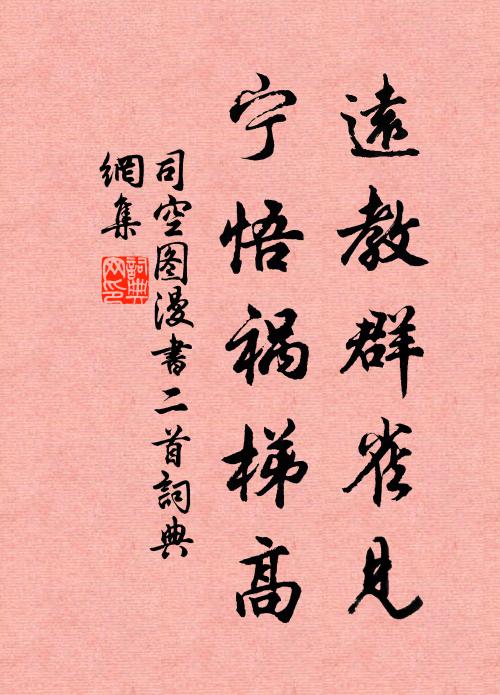 遠教群雀見
宁悟祸梯高
司空图漫書二首詞典
網集
詞典網印